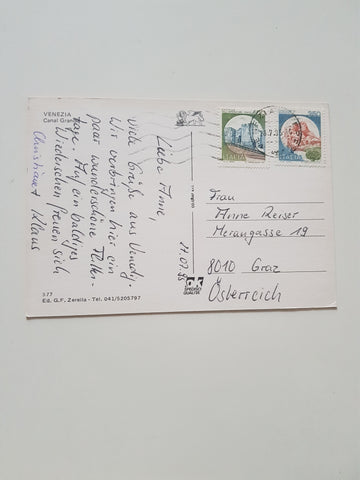 VENEZIA
Canal Grande
Liebe Anne,
viele Grüße aus Venedig.
Wir verbringen hier ein
paar wunderschöne Ferien-
tage. Auf ein baldiges
Wiedersehen freuen sich
Klaus
21.07.95
ITALIA
ITALIA
Frau
Anne Reiser
Merangasse 19
8010 Graz
Österreich
377
Ed. G.F. Zerella - Tel. 041/5205797